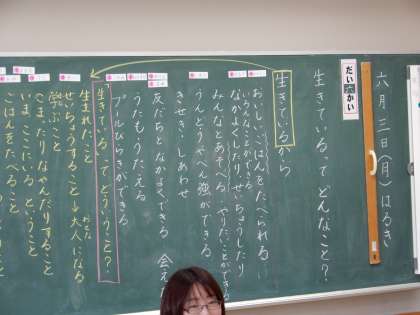 六月三日(月)はるき
だい かい
生きているってどんなこと?
生きているから
おいしいごはんをたべられる。
いろんなことができる
なかよくしたり、せいちょうしたり
みんなとあそべる。やりたいことができる
うんどうやべん強ができる
きせき・しあわせ
友だちとなかよくできる 会え
うたもうたえる
プールびらきができる
生きているってどういうこと?
生まれたこと
せいちょうすること→大人になる
おとな
学ぶこと
いまここにいるということ
ごはんをたべること